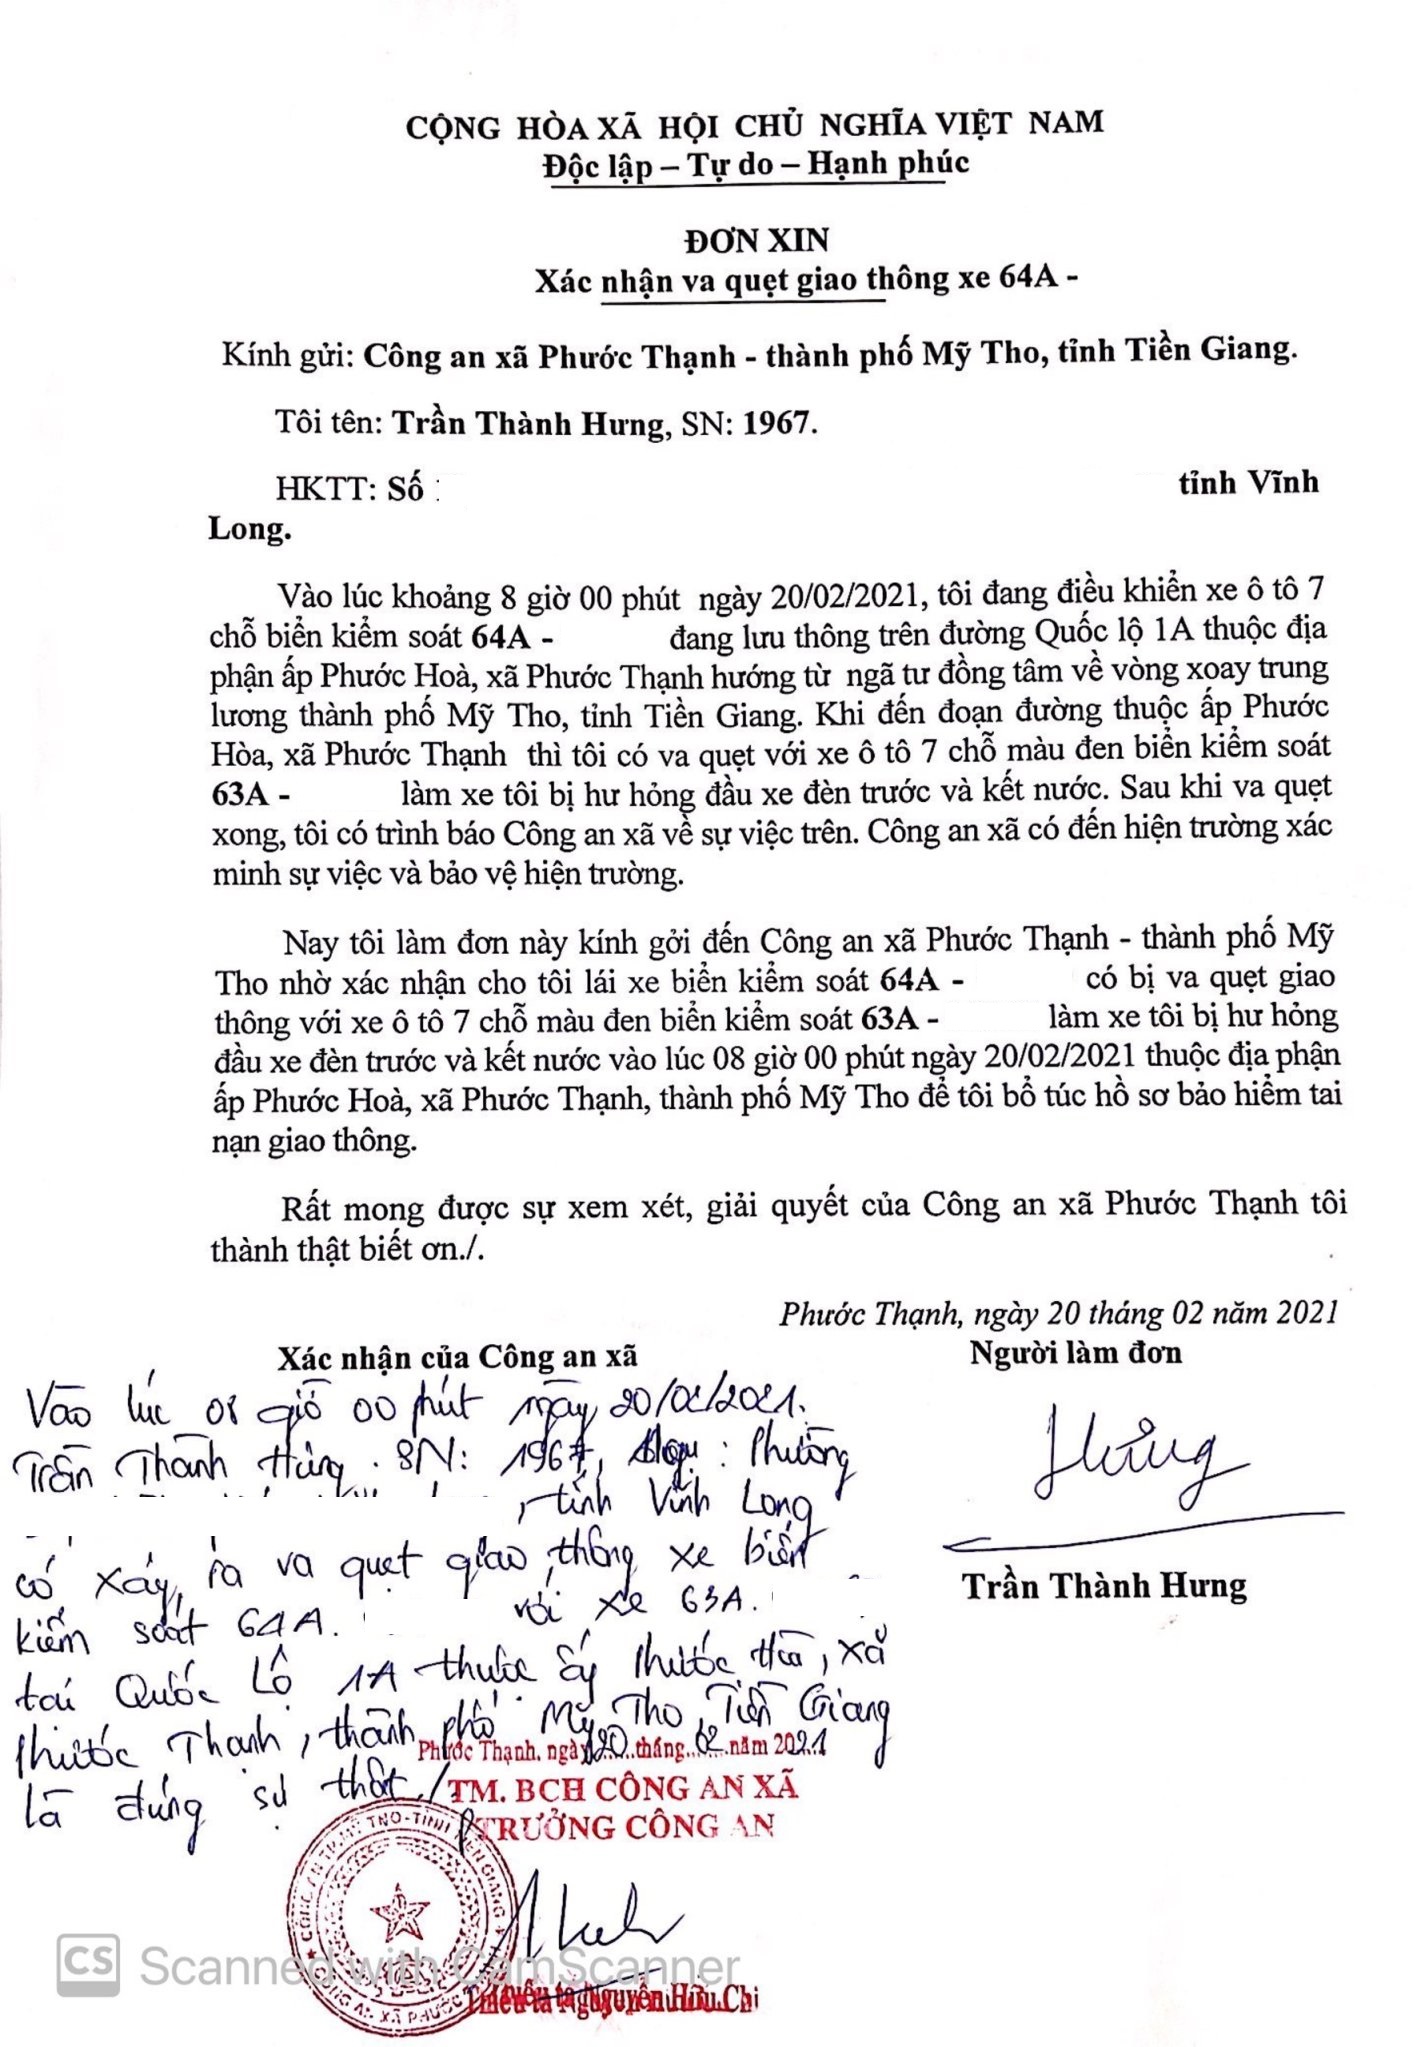 CỘNG HÒA XÃ HỘI CHỦ NGHĨA VIỆT NAM
Độc lập – Tự do – Hạnh phúc
ĐƠN XIN
Xác nhận va quẹt giao thông xe 64A -
Kính gửi: Công an xã Phước Thạnh - thành phố Mỹ Tho, tỉnh Tiền Giang.
Tôi tên: Trần Thành Hưng, SN: 1967.
HKTT: Số : tỉnh Vĩnh
Long.
Vào lúc khoảng 8 giờ 00 phút ngày 20/02/2021, tôi đang điều khiển xe ô tô 7
chỗ biển kiểm soát 64A - đang lưu thông trên đường Quốc lộ 1A thuộc địa
phận ấp Phước Hoà, xã Phước Thạnh hướng từ ngã tư đồng tâm về vòng xoay trung
lương thành phố Mỹ Tho, tỉnh Tiền Giang. Khi đến đoạn đường thuộc ấp Phước
Hòa, xã Phước Thạnh thì tôi có va quẹt với xe ô tô 7 chỗ màu đen biển kiểm soát
63A - làm xe tôi bị hư hỏng đầu xe đèn trước và kết nước. Sau khi va quẹt
xong, tôi có trình báo Công an xã về sự việc trên. Công an xã có đến hiện trường xác
minh sự việc và bảo vệ hiện trường.
Nay tôi làm đơn này kính gởi đến Công an xã Phước Thạnh - thành phố Mỹ
Tho nhờ xác nhận cho tôi lái xe biển kiểm soát 64A - có bị va quẹt giao
thông với xe ô tô 7 chỗ màu đen biển kiểm soát 63A - làm xe tôi bị hư hỏng
đầu xe đèn trước và kết nước vào lúc 08 giờ 00 phút ngày 20/02/2021 thuộc địa phận
ấp Phước Hoà, xã Phước Thạnh, thành phố Mỹ Tho để tôi bổ túc hồ sơ bảo hiểm tai
nạn giao thông.
Rất mong được sự xem xét, giải quyết của Công an xã Phước Thạnh tôi
thành thật biết ơn./.
Phước Thạnh, ngày 20 tháng 02 năm 2021
Xác nhận của Công an xã Người làm đơn
Vào lúc 08 giờ 00 phút ngày 20/02/2021.
Trần Thành Hưng. SN: 1967, : Phường
, tỉnh Vĩnh Long
có xảy ra va quẹt giao thông xe biển
kiểm soát 64A. với xe 63A.
tại Quốc Lộ 1A thuộc ấp Phước Hòa, xã
Phước Thạnh, thành phố Mỹ Tho, Tiền Giang
là đúng sự thật./.
Hưng
Trần Thành Hưng
Phước Thạnh, ngày 20 tháng 02 năm 2021
TM. BCH CÔNG AN XÃ
TRƯỞNG CÔNG AN
Nguyễn Hữu Chi
CS Scanned with CamScanner